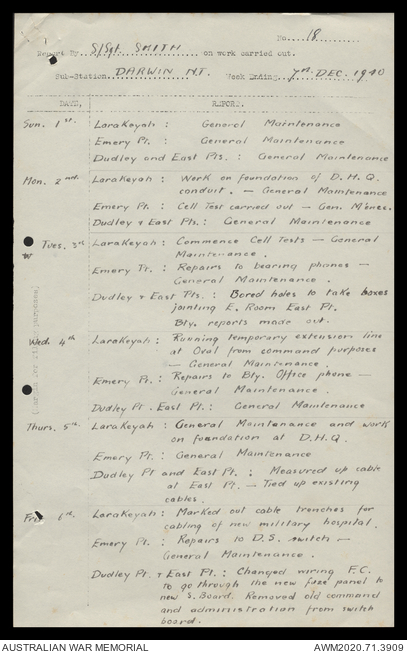 No. 18
Report By S/Sgt. SMITH on work carried out.
Sub-Station DARWIN N.T. Week Ending 7th DEC. 1940
DATE. REPORT.
Sun. 1st. Larakeyah: General Maintenance
Emery Pt. : General Maintenance
Dudley and East Pts. : General Maintenance
Mon. 2nd. Larakeyah: Work on foundation of D.H.Q.
conduit. — General Maintenance
Emery Pt. : Cell Test carried out — Gen. Mtnce.
Dudley & East Pts.: General Maintenance
Tues. 3rd Larakeyah: Commence Cell Tests — General
Maintenance.
Emery Pt. : Repairs to bearing phones —
General Maintenance.
Dudley & East Pts. : Bored holes to take boxes
jointing E. Room East Pt.
Bty. reports made out.
Wed. 4th Larakeyah: Running temporary extension line
at Oval from command purposes
— General Maintenance.
Emery Pt. : Repairs to Bty. Office phone —
General Maintenance.
Dudley Pt. East Pt. : General Maintenance
Thurs. 5th. Larakeyah: General Maintenance and work
on foundation at D.H.Q.
Emery Pt. : General Maintenance
Dudley Pt and East Pt. : Measured up cable
at East Pt. — Tied up existing
cables.
Fri. 6th. Larakeyah: Marked out cable trenches for
cabling of new military hospital.
Emery Pt. : Repairs to D.S. switch —
General Maintenance.
Dudley Pt. & East Pt. : Changed wiring F.C.
to go through the new fuze panel to
new S. Board. Removed old command
and administration from switch
board.
AUSTRALIAN WAR MEMORIAL AWM2020.71.3909